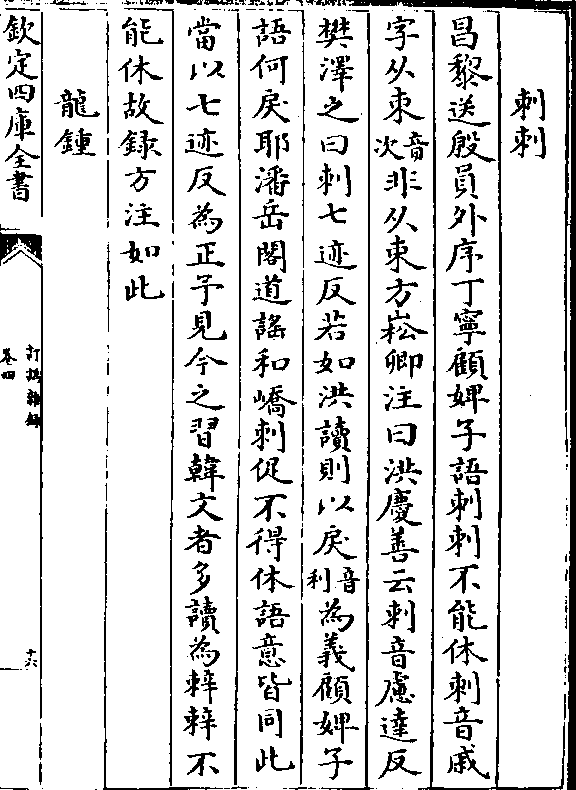 刺刺
昌黎送殷員外序丁寧顧婢子語刺刺不能休刺音戚
字从朿音次非从束方崧卿注曰洪慶善云刺音慮達反
樊澤之曰刺七迹反若如洪讀則以戾音利為義顧婢子
語何戾耶潘岳閣道謠和嶠刺促不得休語意皆同此
當以七迹反為正予見今之習韓文者多讀為辢辢不
能休故録方注如此
龍鍾
欽定四庫全書
訂譌雜録
卷四
十六